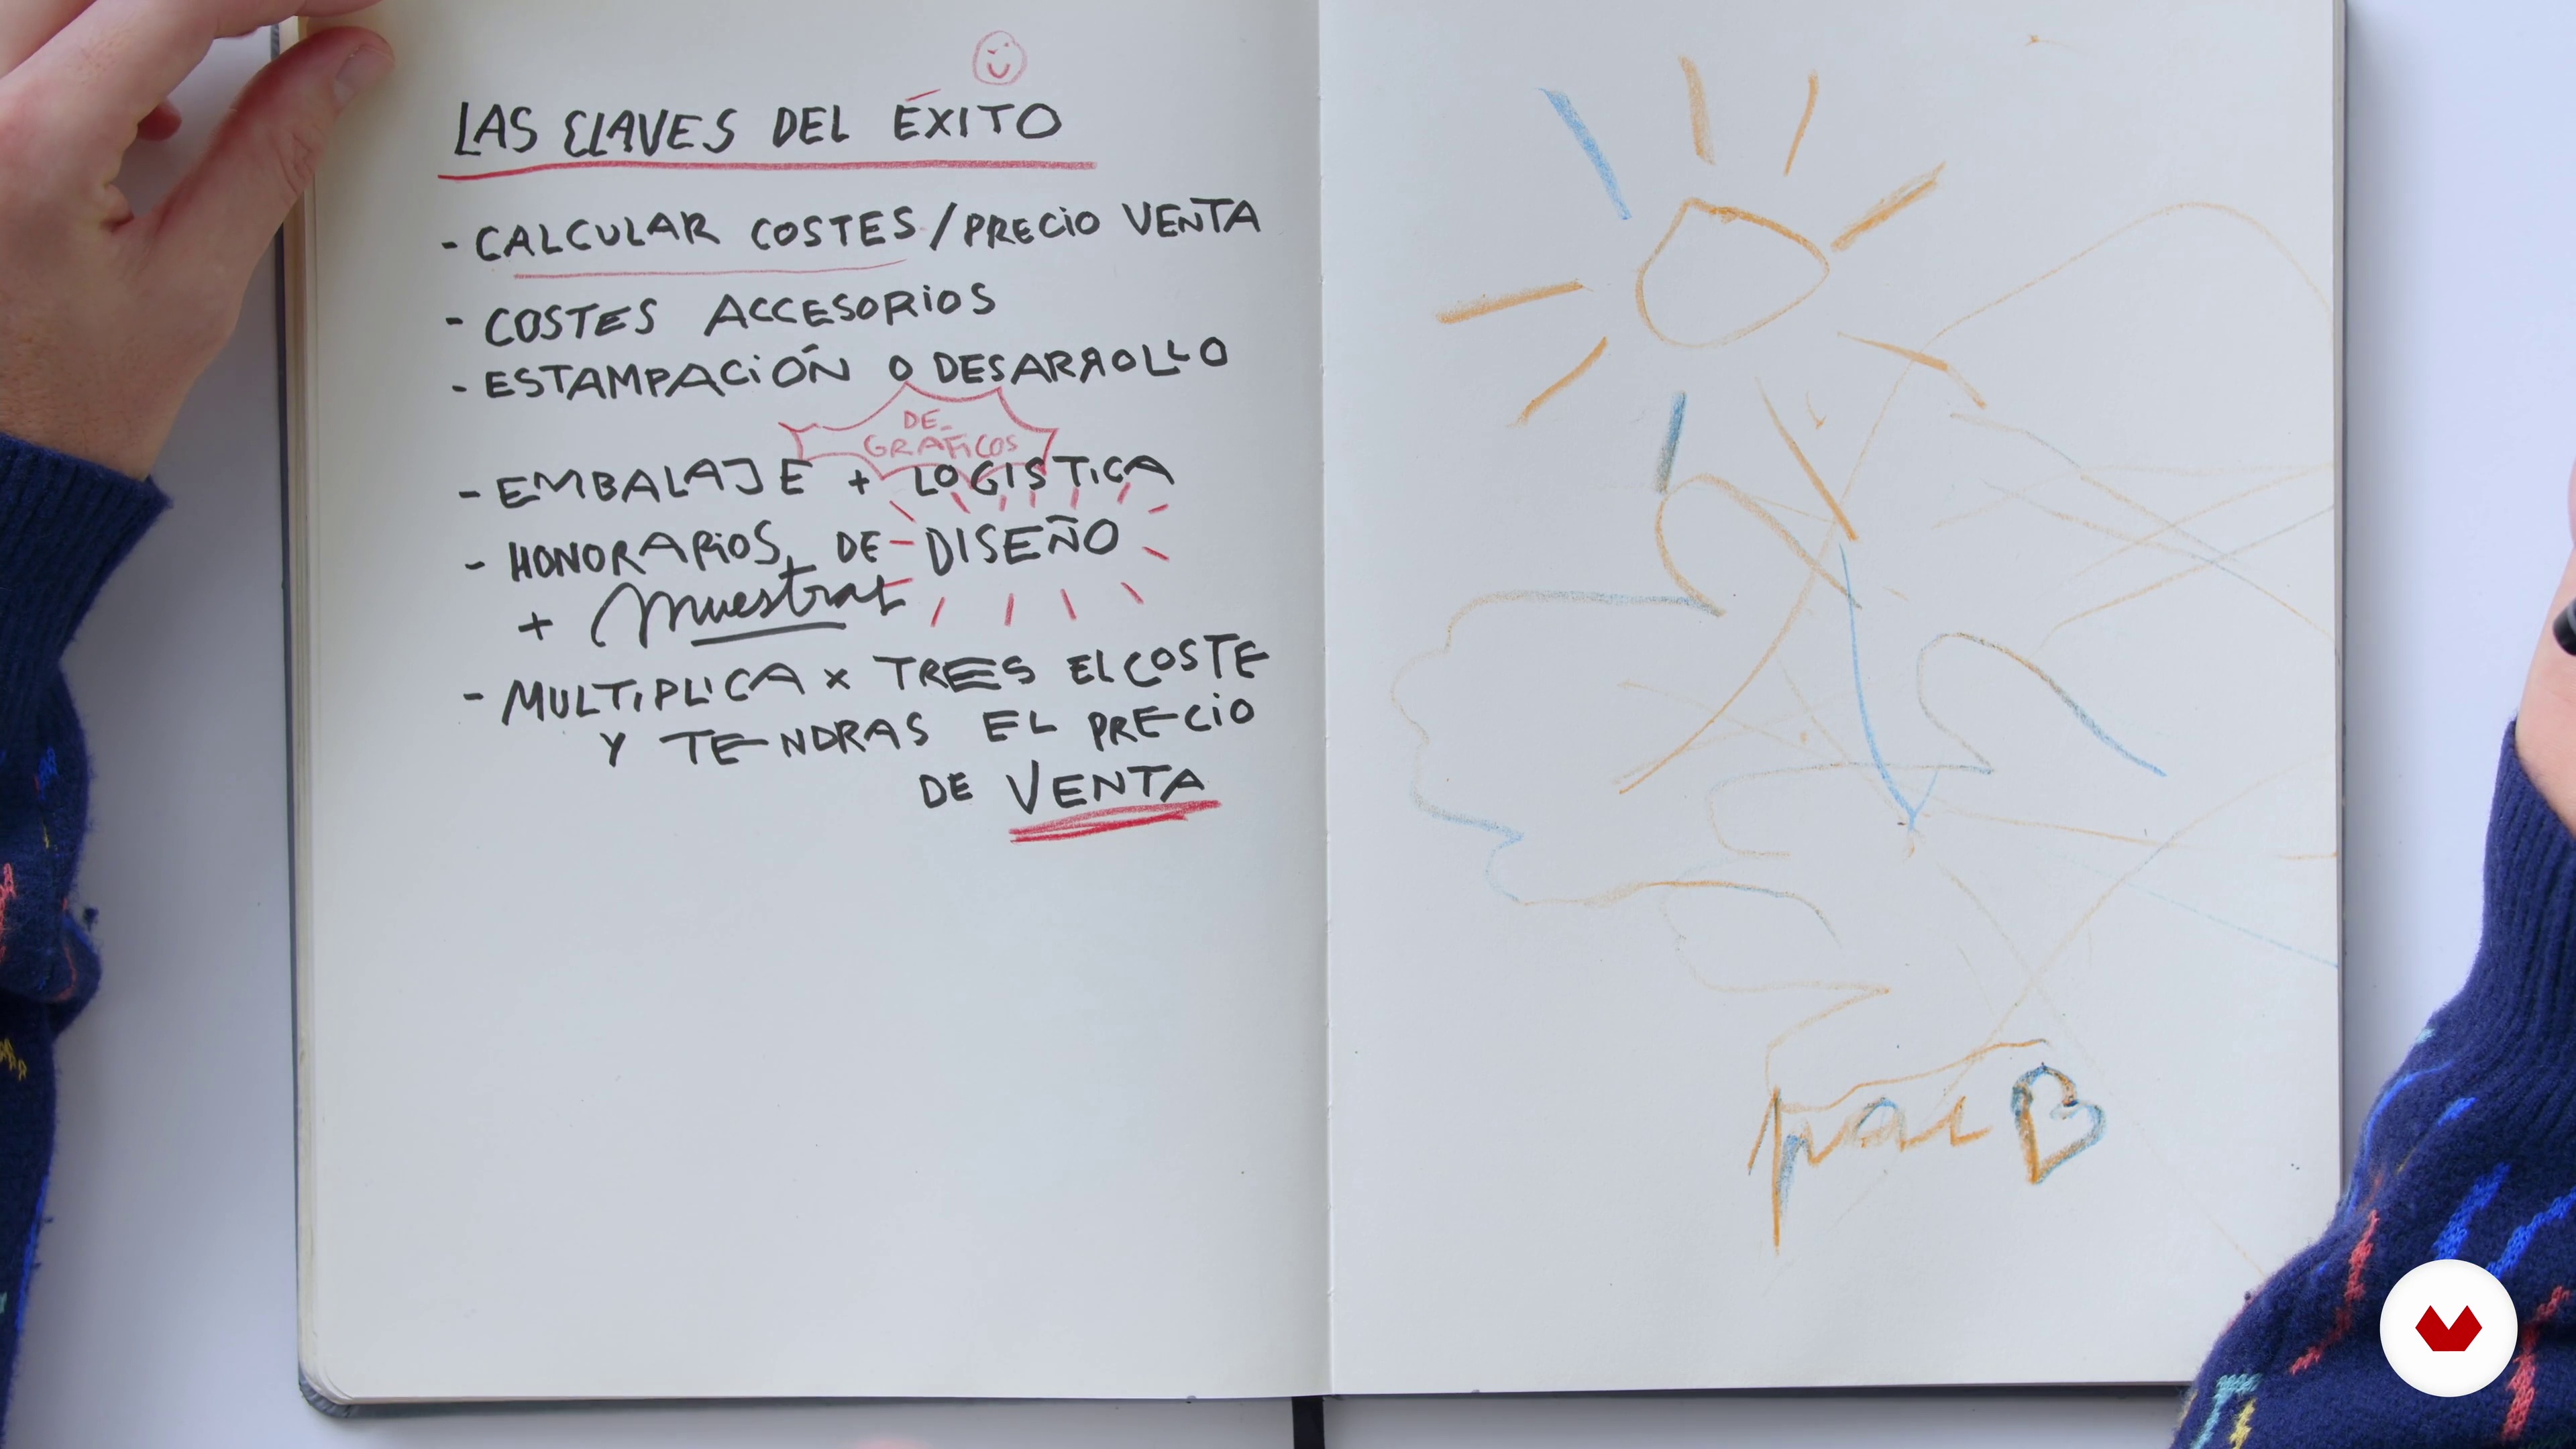 LAS CLAVES DEL ÉXITO
- CALCULAR COSTES / PRECIO VENTA
- COSTES ACCESORIOS
- ESTAMPACIÓN O DESARROLLO
DE
GRAFICOS
- EMBALAJE + LOGISTICA
- HONORARIOS DE DISEÑO
+ muestras
- MULTIPLICA x TRES EL COSTE
Y TENDRAS EL PRECIO
DE VENTA